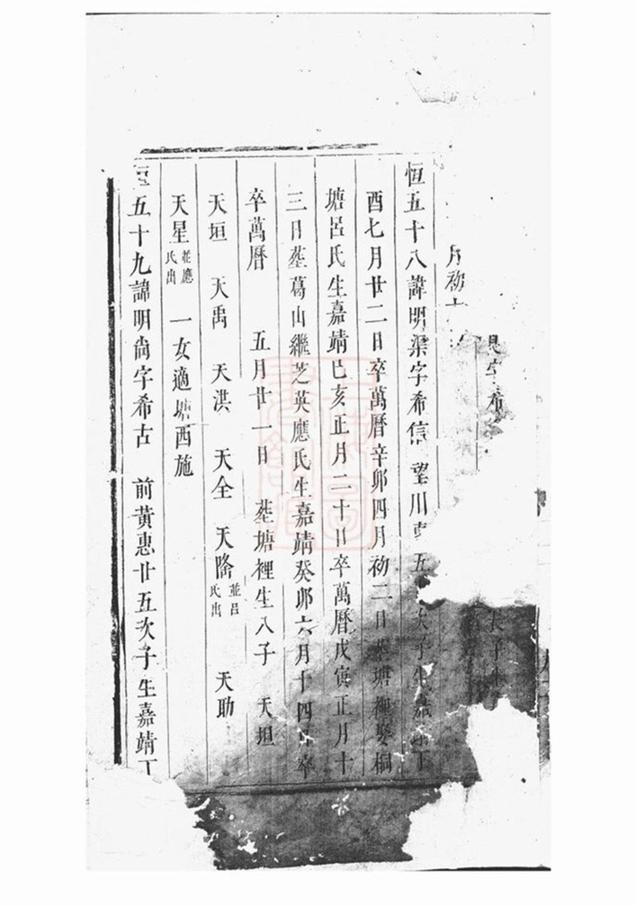 夫子生
字希
月初十
恒五十八諱明渠字希信 望川 五 次子生嘉靖丁
酉七月廿二日卒萬曆辛卯四月初二日塟塘裡娶桐
塘呂氏生嘉靖己亥正月二十日卒萬曆戊寅正月十
三日塟葛山繼芝英應氏生嘉靖癸卯六月十四日卒
卒萬曆 五月廿一日 塟塘裡生八子 天垣
天垣 天禹 天洪 天全 天隆並呂氏出 天助
天星並應氏出 一女適塘西施
恒五十九諱明尙字希古 前黃惠廿五次子生嘉靖丁